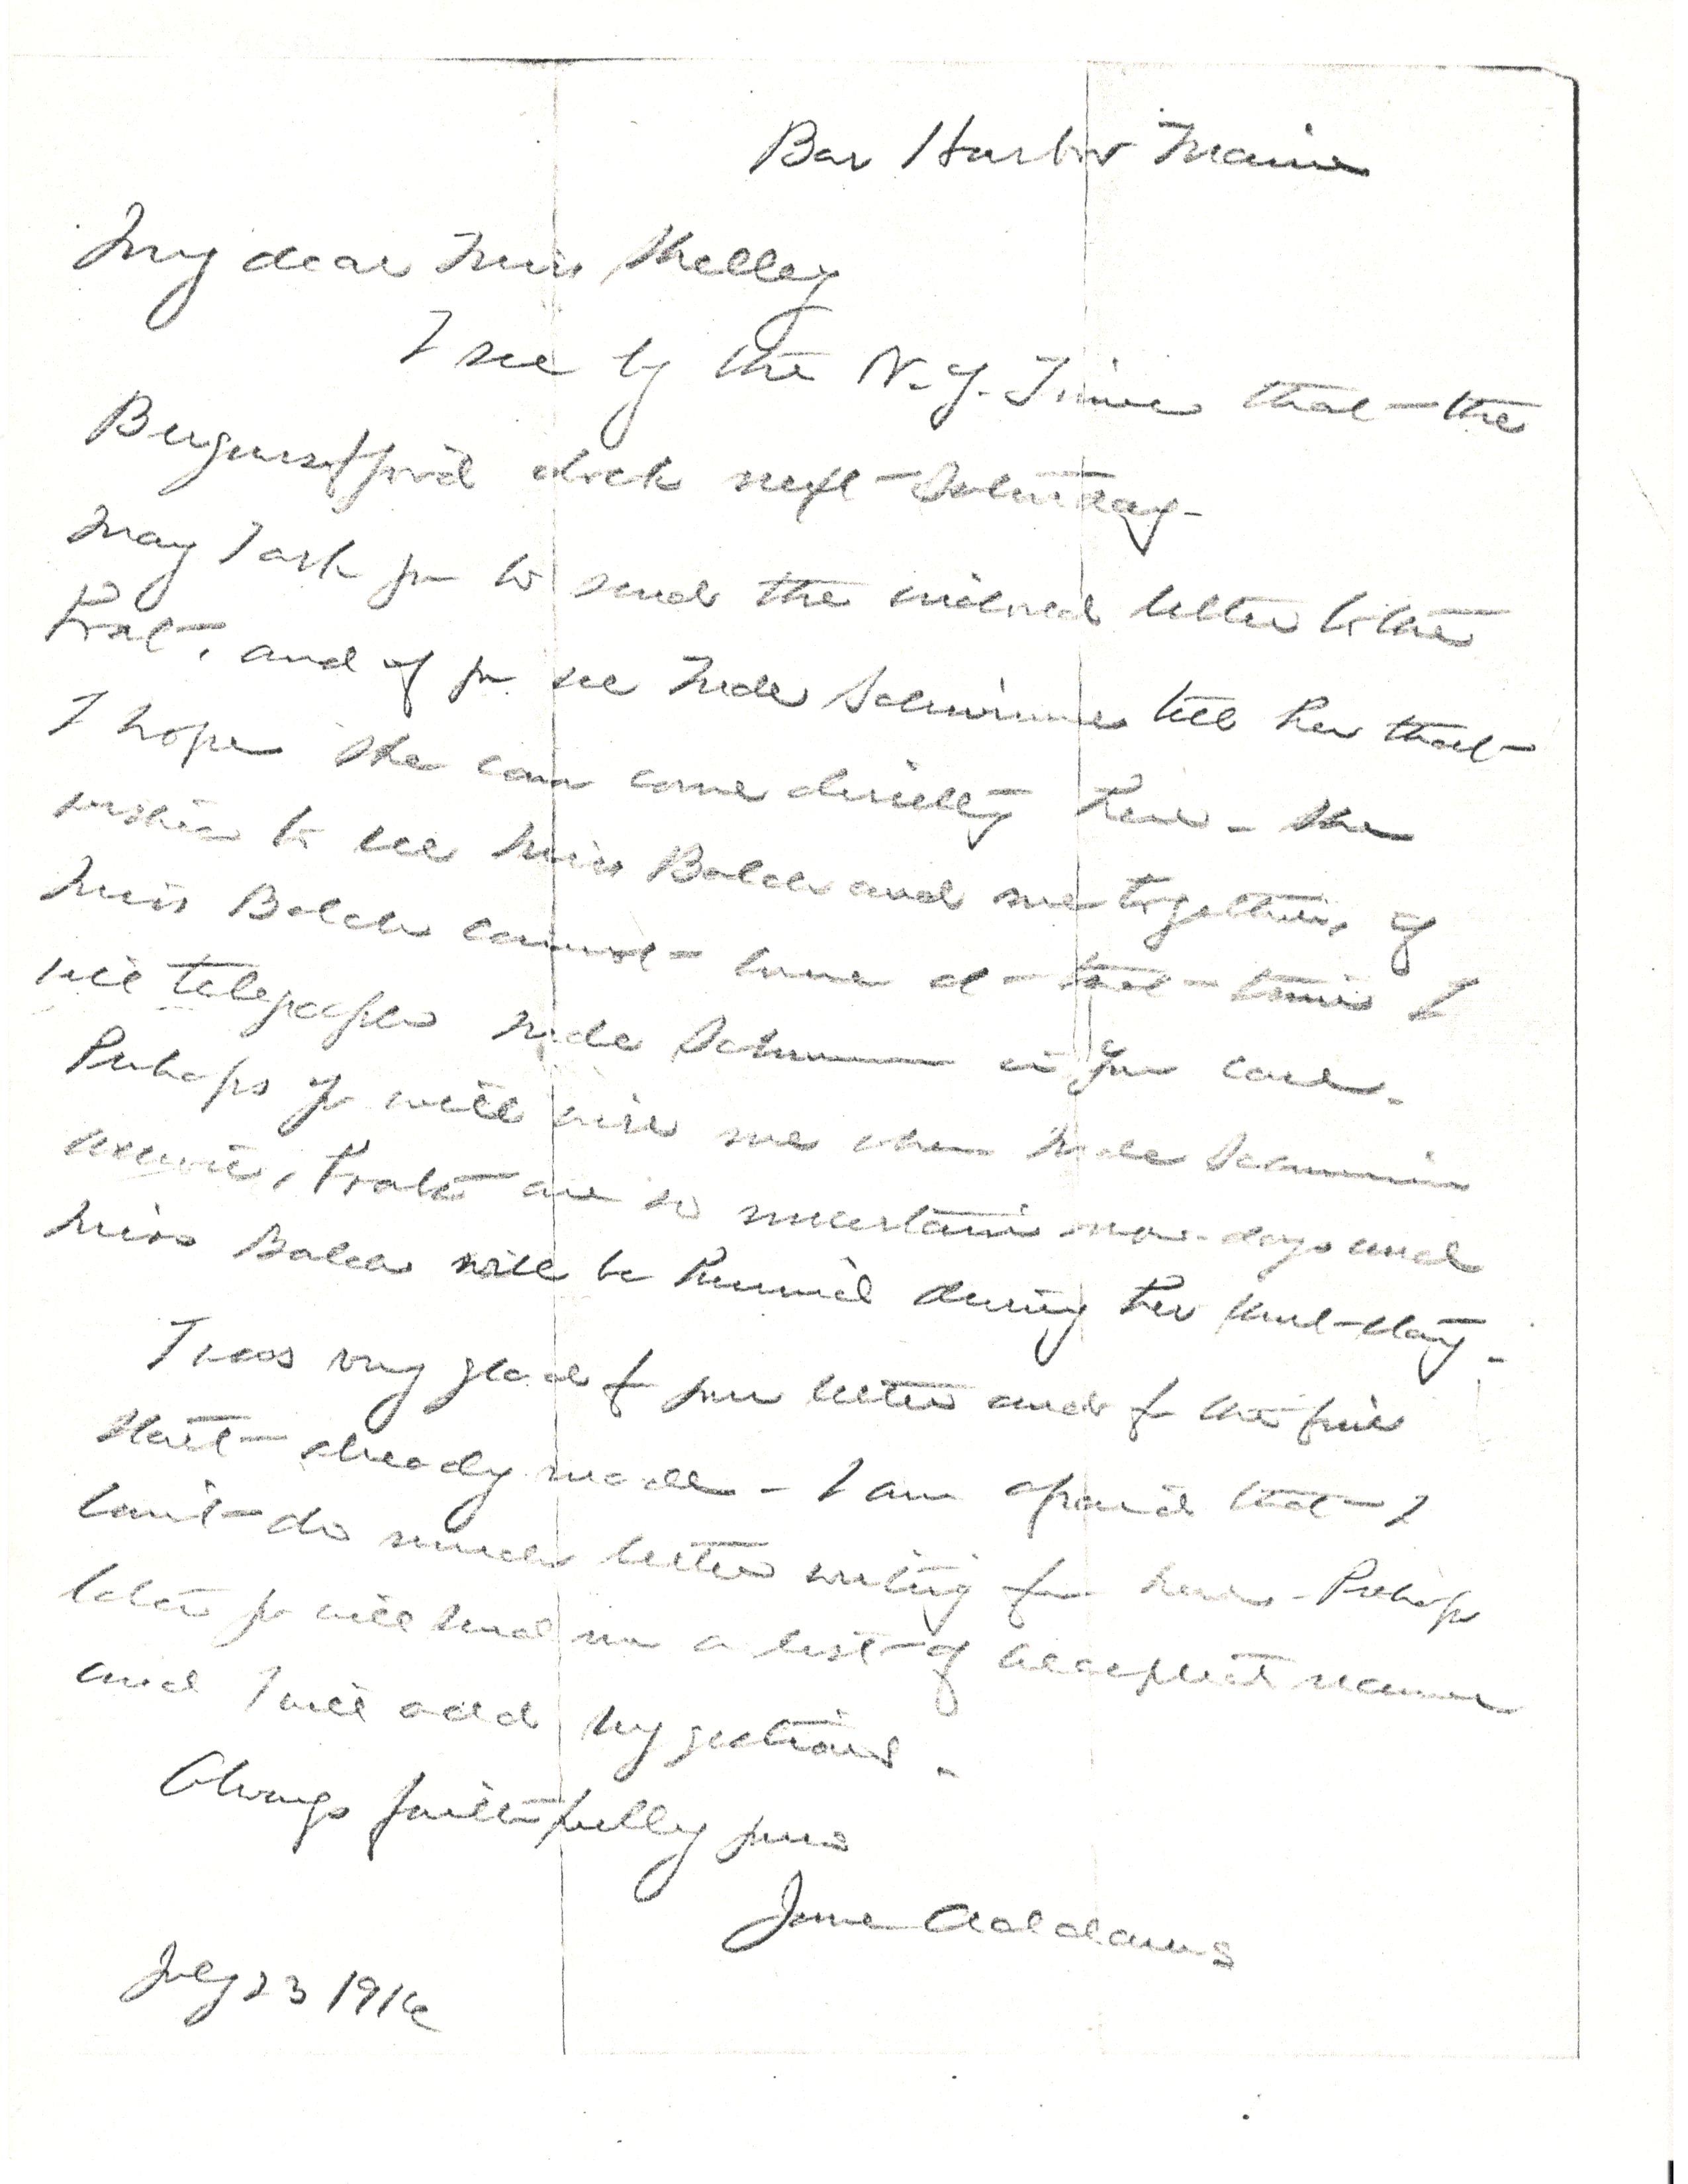 Bar Harbor Maine
My dear Miss Shelley
I see by the N.Y. Times that the
Bergensfjord dock next Saturday.
May I ask you to send the inclosed letter to the
boat, and if you see Mde Schwimmer tell her that
I hope she can come directly here. She
wishes to see Miss Balch and me together, if
Miss Balch cannot come at that time I
will telegraph Mde Schwimmer in your care.
Perhaps you will wire me when Mde Schwimmer
arrives, boats are so uncertain now-days and
Miss Balch will be hurried during her short stay.
I was very glad of your letter and of the fine
start already made - I am afraid that I
can't do much letter writing from here - Perhaps
later you will send me a list of accepted names
and I will add suggestions.
Always faithfully yours
Jane Addams
July 23 1916